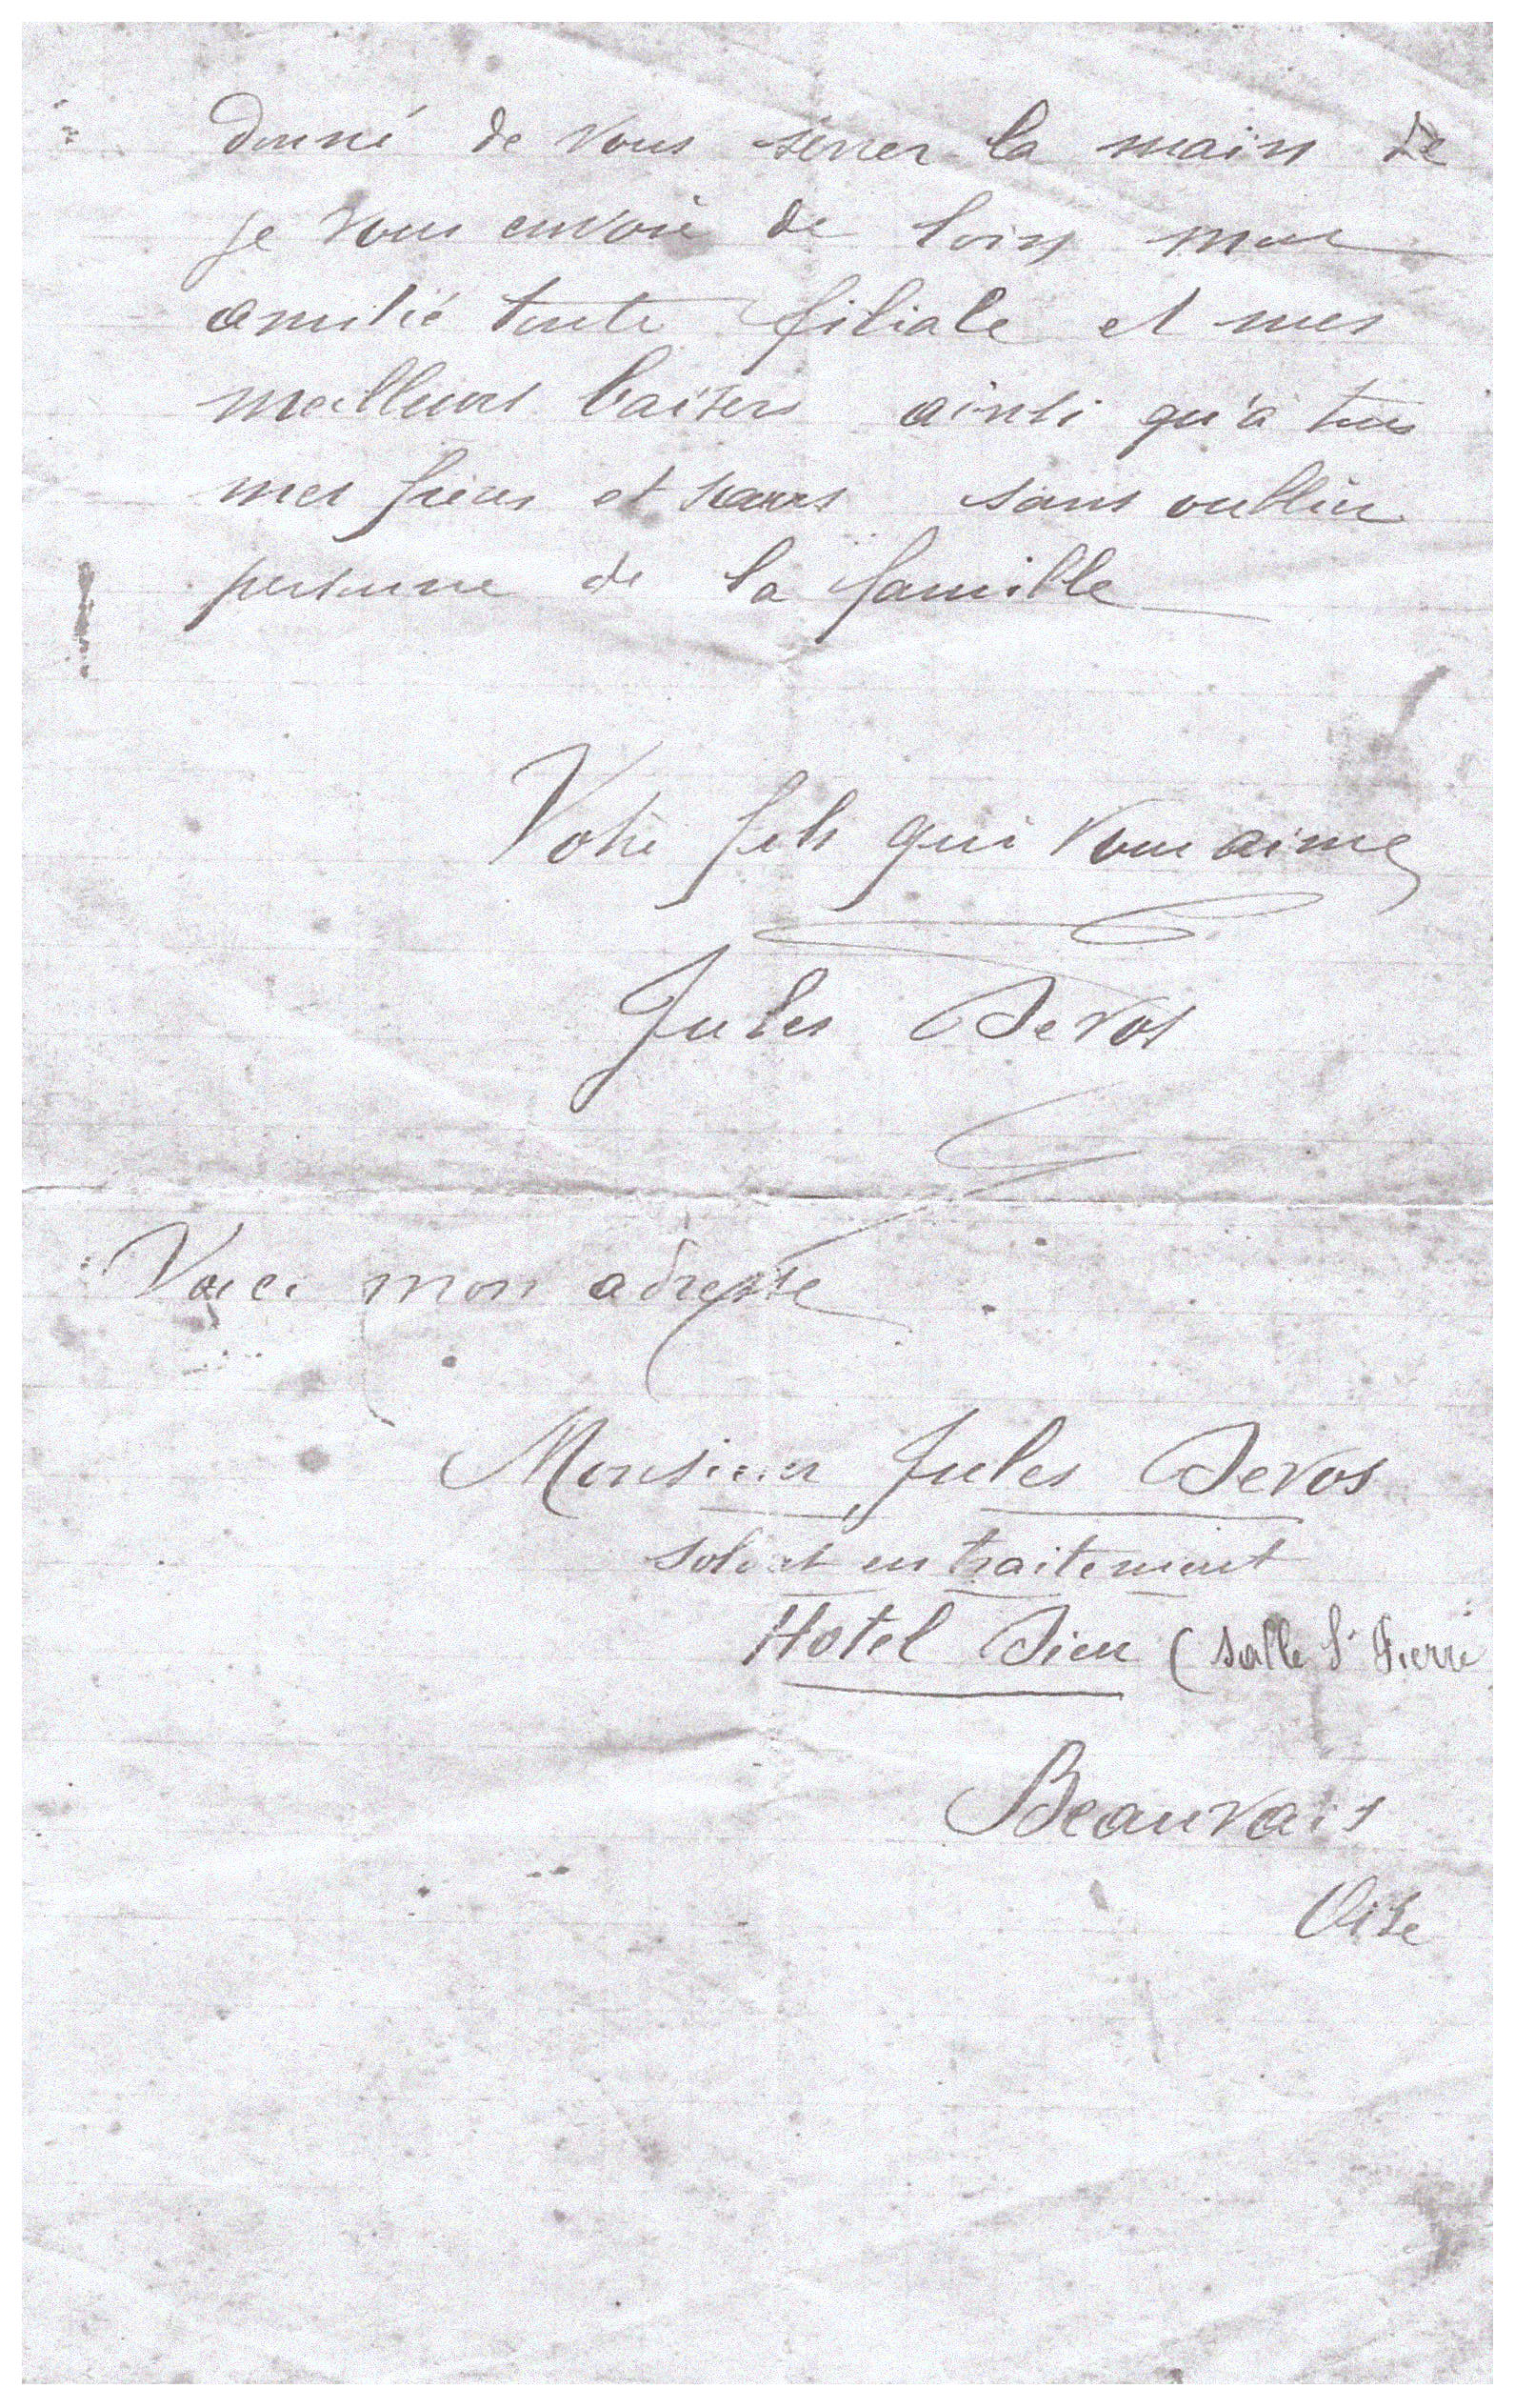 donné de vous serrer la main de
je vous envoie de loin mon
amitié toute filiale et mes
meilleurs baisers ainsi qu'à tous
mes frères et sœurs sans oublier
personne de la famille
Votre fils qui vous aime
Jules Devos
Voici mon adresse
Monsieur Jules Devos
soldat en traitement
Hotel Dieu (salle St Pierre
Beauvais
Oise